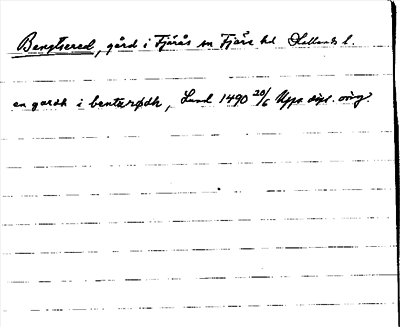 Bengtsered, gård i Fjärås sn Fjäre hd Hallands l.
en gardh i bentzrødh, Lund 1490 20/6 Upps. dipl. orig.